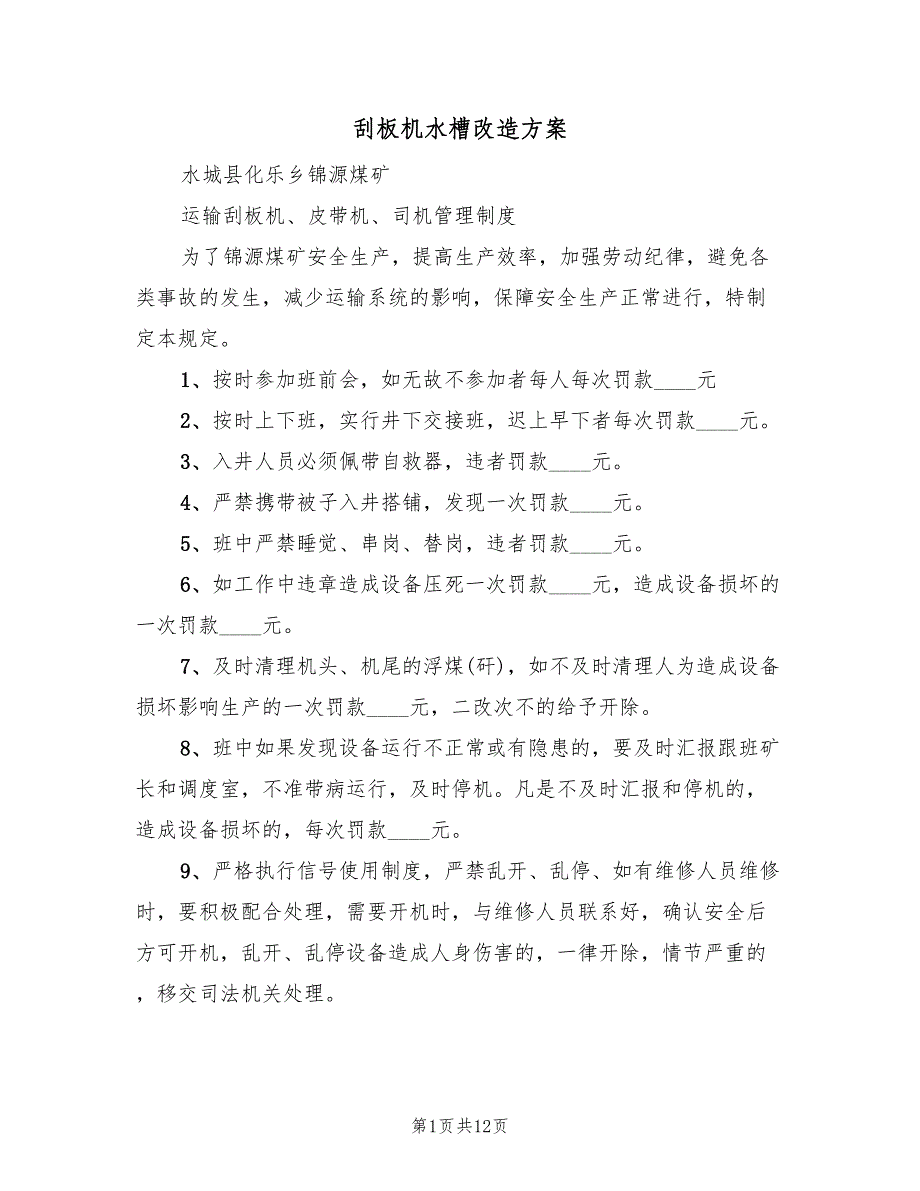 刮板机水槽改造方案
水城县化乐乡锦源煤矿
运输刮板机、皮带机、司机管理制度
为了锦源煤矿安全生产，提高生产效率，加强劳动纪律，避免各
类事故的发生，减少运输系统的影响，保障安全生产正常进行，特制
定本规定。
1、按时参加班前会，如无故不参加者每人每次罚款____元
2、按时上下班，实行井下交接班，迟上早下者每次罚款____元。
3、入井人员必须佩带自救器，违者罚款____元。
4、严禁携带被子入井搭铺，发现一次罚款____元。
5、班中严禁睡觉、串岗、替岗，违者罚款____元。
6、如工作中违章造成设备压死一次罚款____元，造成设备损坏的
一次罚款____元。
7、及时清理机头、机尾的浮煤(矸)，如不及时清理人为造成设备
损坏影响生产的一次罚款____元，二改次不的给予开除。
8、班中如果发现设备运行不正常或有隐患的，要及时汇报跟班矿
长和调度室，不准带病运行，及时停机。凡是不及时汇报和停机的，
造成设备损坏的，每次罚款____元。
9、严格执行信号使用制度，严禁乱开、乱停、如有维修人员维修
时，要积极配合处理，需要开机时，与维修人员联系好，确认安全后
方可开机，乱开、乱停设备造成人身伤害的，一律开除，情节严重的
，移交司法机关处理。
第1页共12页